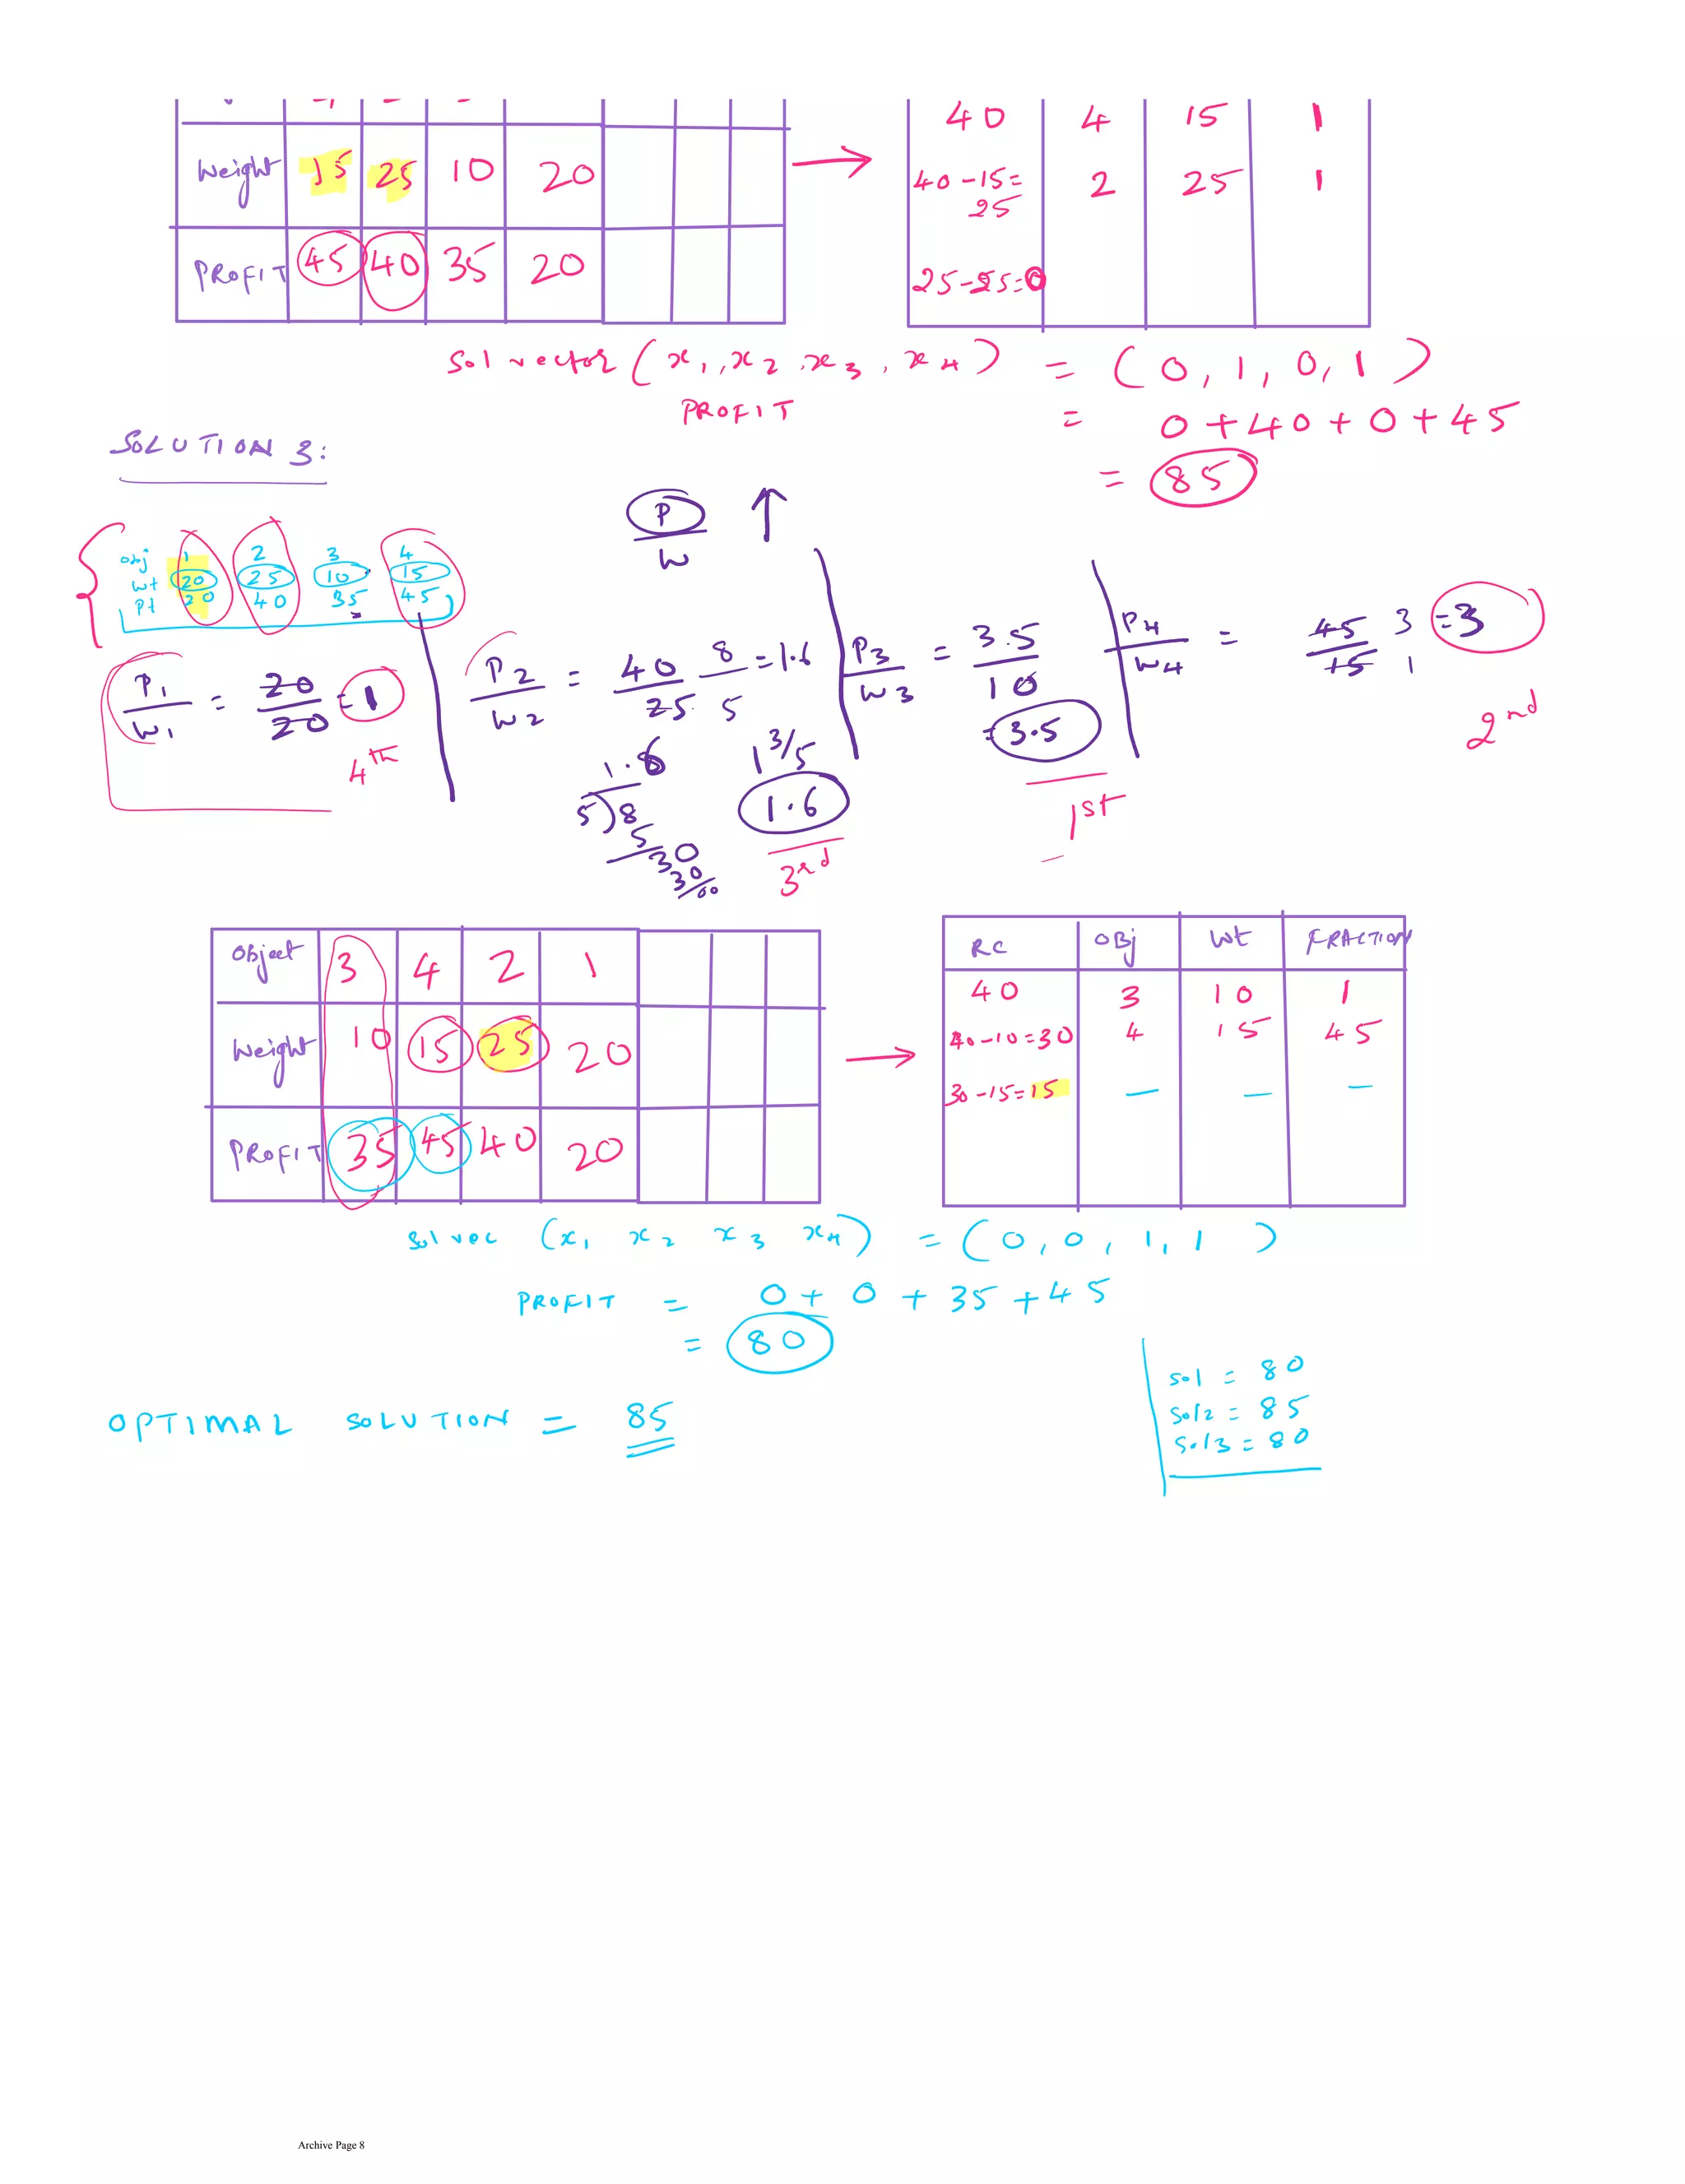 40 4 15 1
Weight 15 25 10 20
40-15= 2 25 1
25
PROFIT 45 40 35 20
25-25=0
Sol vector (x1, x2, x3, x4) = (0, 1, 0, 1)
PROFIT = 0+40+0+45
= 85
SOLUTION 3:
P/W ↑
obj 1 2 3 4
wt 20 25 10 15
Pt 20 40 35 45
P1/W1 = 20/20 = 1
4th
P2/W2 = 40/25 8/5 = 1.6
1.6
5)8
5
30
30
00
1 3/5
1.6
3rd
P3/W3 = 3.5/10
= 3.5
1st
P4/W4 = 45/15 3/1 = 3
2nd
Object 3 4 2 1
Weight 10 15 25 20
PROFIT 35 45 40 20
RC OBj Wt FRACTION
40 3 10 1
40-10=30 4 15 45
30-15=15 — — —
Sol vec (x1 x2 x3 x4) = (0, 0, 1, 1)
PROFIT = 0+0+35+45
= 80
sol = 80
sol2 = 85
sol3 = 80
OPTIMAL SOLUTION = 85
Archive Page 8